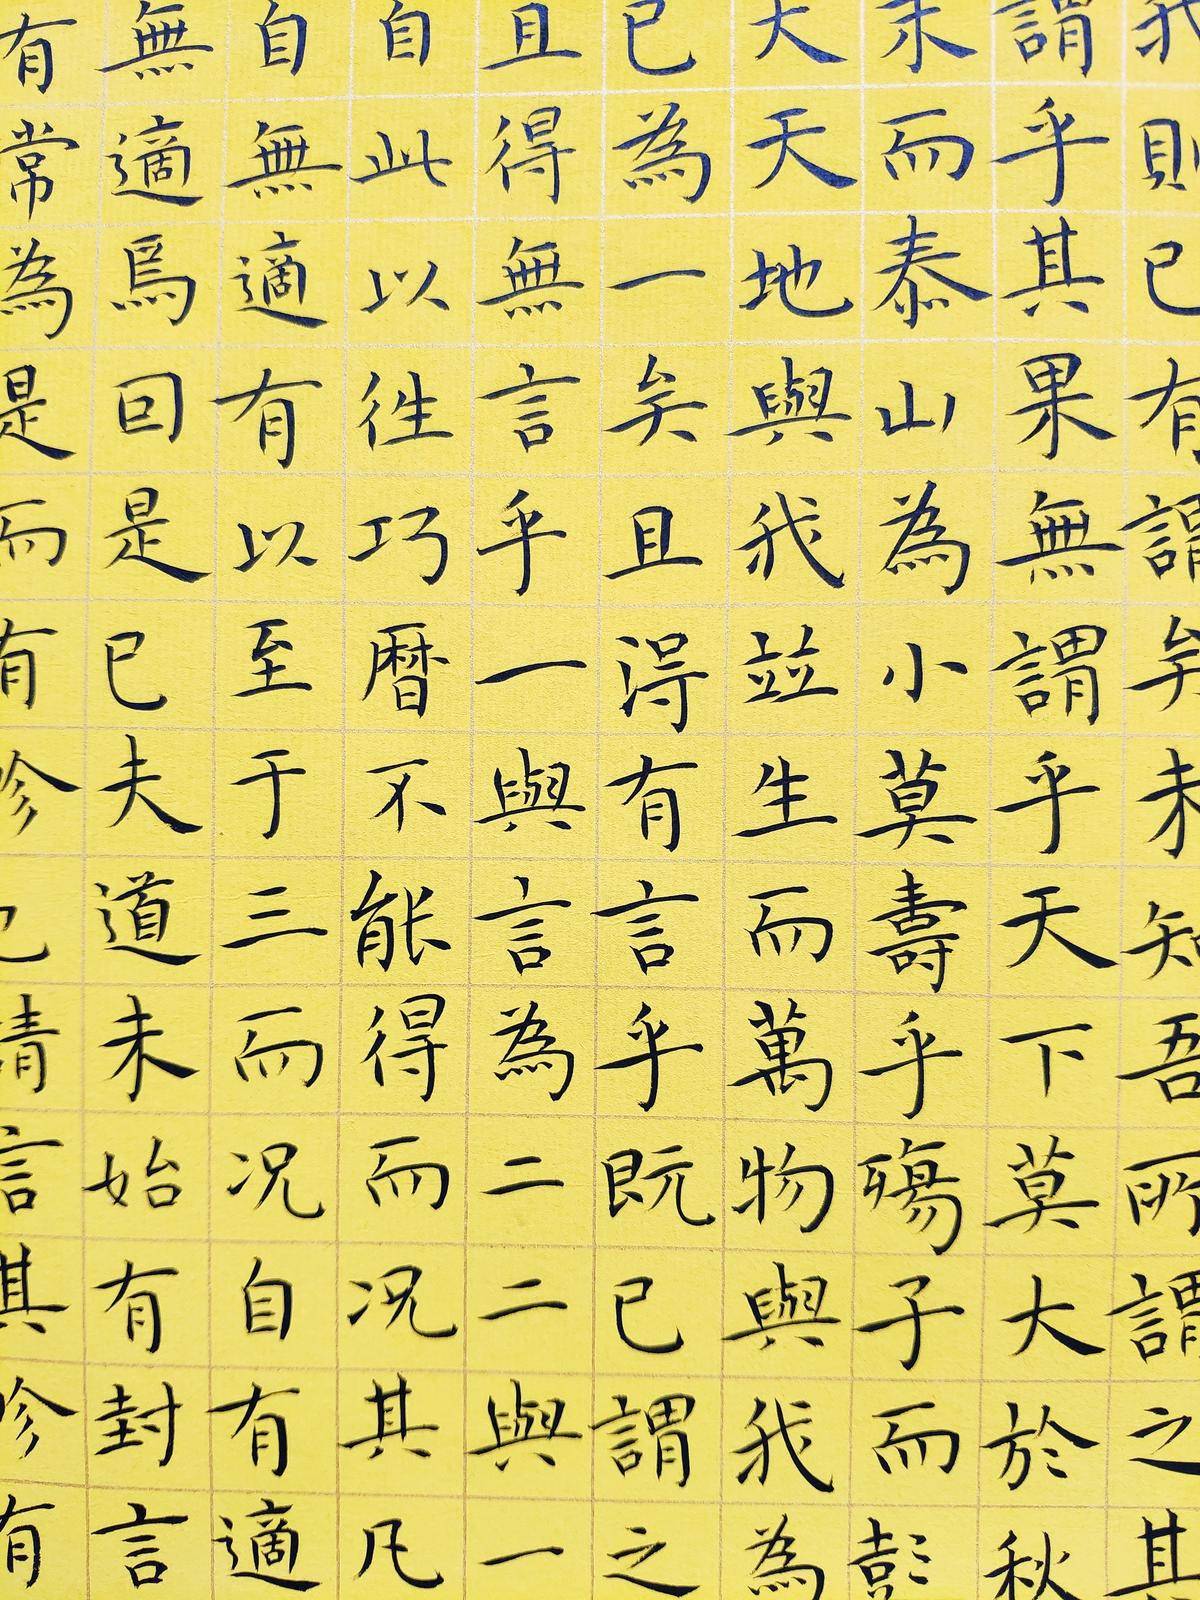 我則已有謂矣未知吾所謂之其
謂乎其果無謂乎天下莫大於秋
末而泰山為小莫壽乎殤子而彭
夭天地與我竝生而萬物與我為
已為一矣且得有言乎既已謂之
且得無言乎一與言為二二與一
自此以往巧暦不能得而况其凡
自無適有以至于三而况自有適
無適焉囙是已夫道未始有封言
有常為是而有畛已請言其畛有